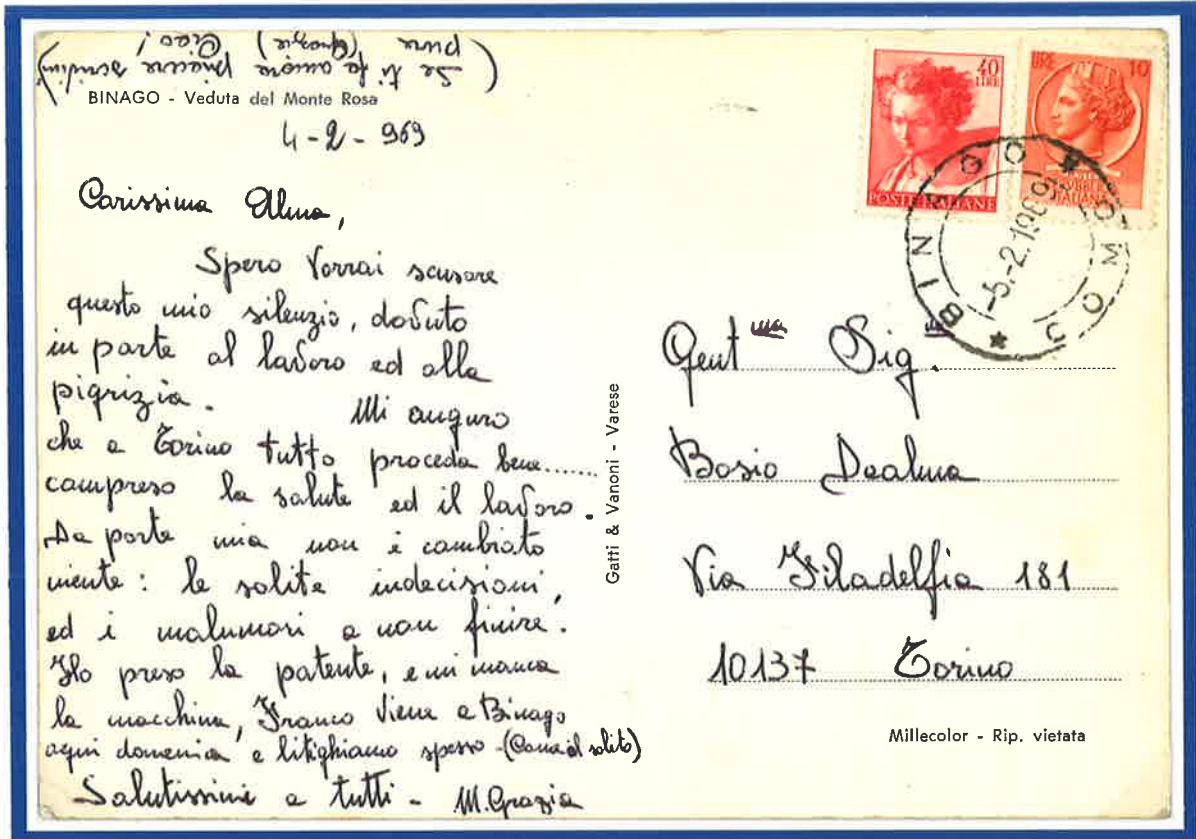 (Se ti fa ancora piacere scrivimi
pure (grazie) Ciao!
BINAGO - Veduta del Monte Rosa
4-2-969
Carissima Alma,
Spero Vorrai scusare
questo mio silenzio, dovuto
in parte al lavoro ed alla
pigrizia. Mi auguro
che a Torino tutto proceda bene......
compreso la salute ed il lavoro.
Da parte mia non è cambiato
niente: le solite indecisioni,
ed i malumori a non finire.
Ho preso la patente, e mi manca
la macchina, Franco viene a Binago
ogni domenica e litighiamo spesso - (Come al solito)
Salutissimi a tutti - M. Grazia
Gatti & Vanoni - Varese
40 LIRE
POSTE ITALIANE
LIRE 10
POSTE
REPUBBLICA
ITALIANA
BINAGO * COMO *
-5.-2.1969
Gent ma Sig.
Bosio Dealma
Via Filadelfia 181
10137 Torino
Millecolor - Rip. vietata